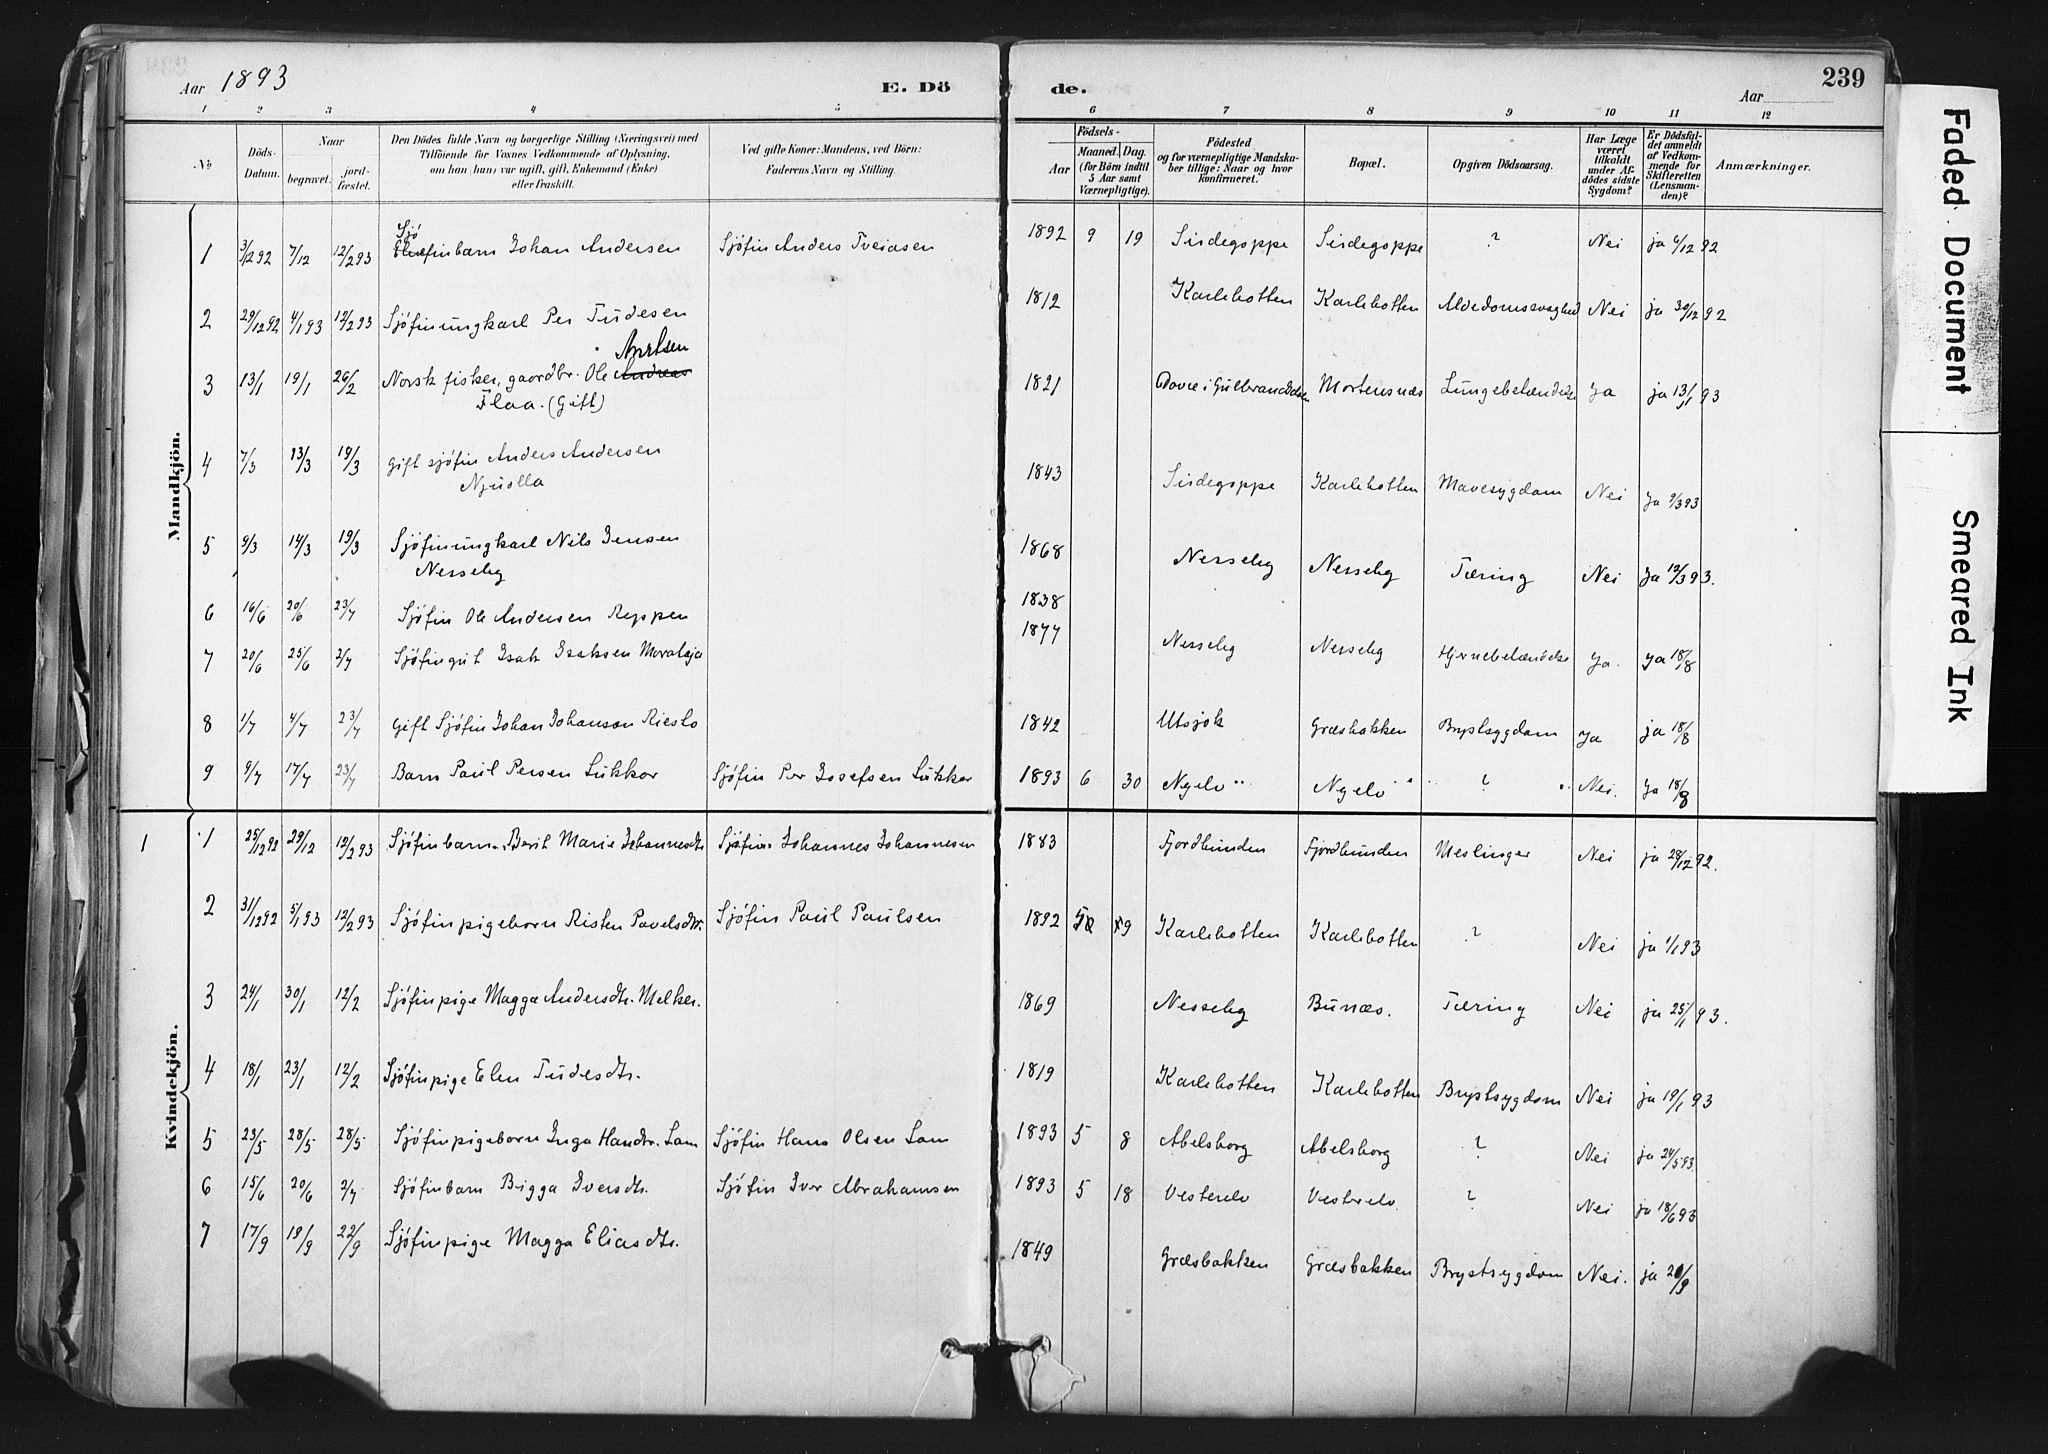 Aar 1893 E. Dö
de. Aar 239
1 2 3 4 5
6 7 8 9 10 11 12
No Döds-Datum. Naar begravet. jord-fæstet. Den Dödes fulde Navn og borgerlige Stilling (Næringsvei) med Tilföiende for Voxnes Vedkommende af Oplysning, om han (hun) var ugift, gift, Enkemand (Enke) eller fraskilt. Ved gifte Koner: Mandens, ved Börn: Faderens Navn og Stilling.
Födsels- Aar Maaned. Dag. (for Börn indtil 5 Aar samt Værnepligtige). Födested og for værnepligtige Mandskaber tillige: Naar og hvor konfirmeret. Bopæl. Opgiven Dödsaarsag. Har Læge været tilkaldt under Afdödes sidste Sygdom? Er Dödsfaldet anmeldt af Vedkommende for Skifteretten (Lensmanden)? Anmærkninger.
Mandkjön.
1 3/1292 7/12 12/293 Sjöfinbarn Johan Andersen Sjöfin Anders Tveiasen 1892 9 19 Sirdegoppe Sirdegoppe ? Nei ja 6/12 92
2 29/1292 4/193 12/293 Sjöfinungkarl Per Tudesen 1812 Karlebotten Karlebotten Alderdomssvaghed Nei ja 30/12 92
3 13/1 19/1 26/2 Norsk fisker, gaardbr. Ole Andreas
Flaa. (Gift) 1821 Dovre i Gulbrandsdalen Mortensnæs Lungebetændelse Ja ja 13/1 93
4 7/3 13/3 19/3 Gift sjöfin Anders Andersen
Njuolla 1843 Sirdegoppe Karlebotten Mavesygdom Nei Ja 9/3 93
5 9/3 14/3 19/3 Sjöfinungkarl Nils Jensen
Nesseby 1868 Nesseby Nesseby Tæring Nei Ja 12/3 93.
6 16/6 20/6 23/7 Sjöfin Ole Andersen Reppen 1838
7 20/6 25/6 2/7 Sjöfingut Isak Isaksen 1877 Nesseby Nesseby Hjernebetændelse Ja. Ja 18/8
8 1/7 4/7 23/7 Gift Sjöfin Johan Johansen Riesto 1842 Utsjok Græsbakken Brystsygdom Ja ja 18/8
9 9/7 17/7 23/7 Barn Paul Persen Lukkar Sjöfin Per Josefsen Lukkar 1893 6 30 Nyelv Nyelv ? Nei. Ja 18/8
Kvindekjön.
1 1 25/1292 29/12 12/293 Sjöfinbarn Berit Marie Johannesdtr Sjöfin Johannes Johannesen 1883 Fjordbunden Fjordbunden Meslinger Nei ja 28/12 92.
2 31/1292 5/193 12/293 Sjöfinpigebarn Risten Pavelsdtr. Sjöfin Paul Paulsen 1892 Karlebotten Karlebotten ? Nei ja 1/1 93
3 24/1 30/1 12/2 Sjöfinpige Magga Andersdtr. Melker. 1869 Nesseby Bunæs. Tæring Nei ja 25/1 93.
4 18/1 23/1 12/2 Sjöfinpige Elen Tudesdtr. 1819 Karlebotten Karlebotten Brystsygdom Nei ja 19/1 93
5 23/5 28/5 28/5 Sjöfinpigebarn Inga Hansdtr. Lam Sjöfin Hans Olsen Lam 1893 5 8 Abelsborg Abelsborg ? Nei ja 24/5 93.
6 15/6 20/6 2/7 Sjöfinbarn Bigga Iversdtr. Sjöfin Iver Abrahamsen 1893 5 18 Vesterelv Vesterelv. ? Nei ja 18/6 93
7 17/9 19/9 22/9 Sjöfinpige Magga Eliasdtr. 1849 Græsbakken Græsbakken Brystsygdom Nei. ja 20/9
Faded Document
Smeared Ink